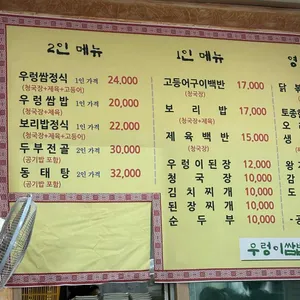 2인 메뉴
우렁쌈정식 1인 가격 24,000
(청국장+제육+고등어)
우렁쌈밥 1인 가격 20,000
(청국장+제육)
보리밥정식 1인 가격 22,000
(청국장+제육+고등어)
두부전골 2인 가격 30,000
(공기밥 포함)
동태탕 2인 가격 32,000
(공기밥 포함)
1인 메뉴
고등어구이백반 17,000
(청국장)
보리밥 17,000
(청국장+제육)
제육백반 15,000
(청국장)
우렁이된장 12,000
청국장 10,000
김치찌개 10,000
된장찌개 10,000
순두부 10,000
우렁이쌈밥
영
닭
토종
생